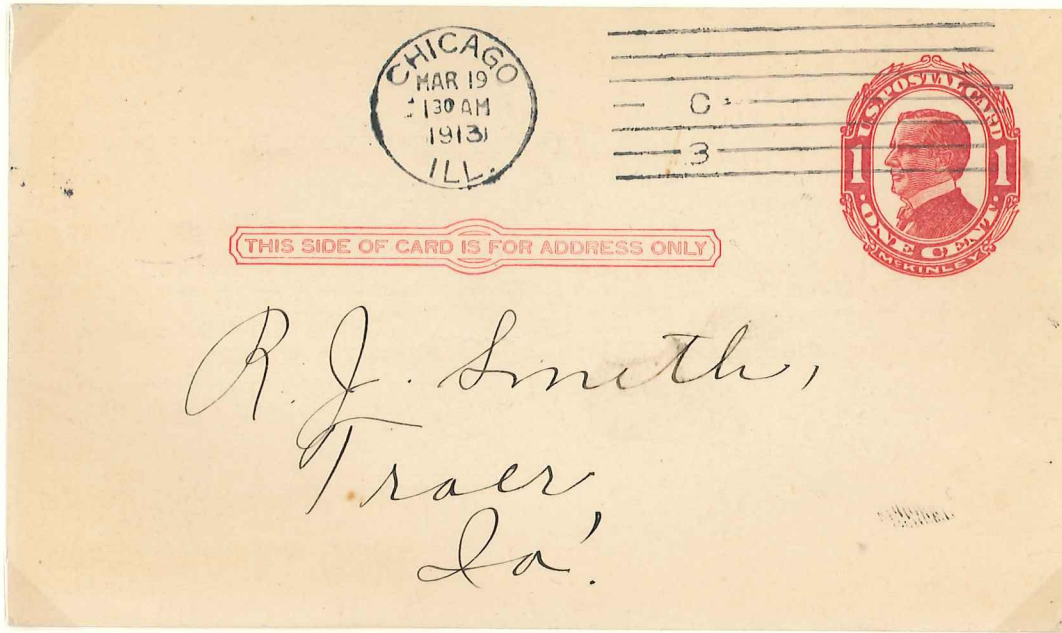 CHICAGO
MAR 19
130 AM
1913
ILL.
C
3
U.S. POSTAL CARD
1 1
· ONE CENT ·
McKINLEY
THIS SIDE OF CARD IS FOR ADDRESS ONLY
R. J. Smith,
Traer
Ia'.